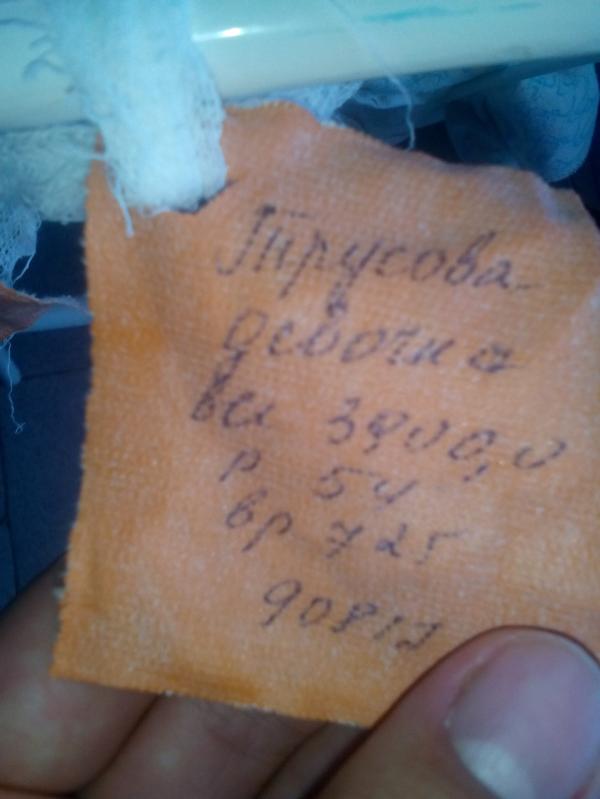 Трусова
девочка
вес 3900,0
р 54
вр 725